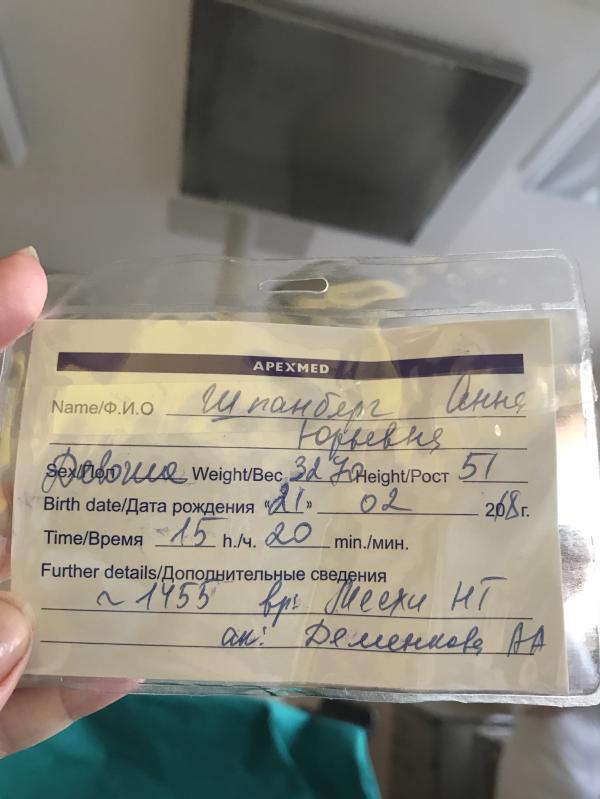 APEXMED
Name/Ф.И.О Шпанберг Анна
Юрьевна
Sex/Пол Девочка Weight/Вес 3270 Height/Рост 51
Birth date/Дата рождения «21» 02 2018г.
Time/Время 15 h./ч. 20 min./мин.
Further details/Дополнительные сведения
~ 1455 вр: Месхи НТ
ак: Деменкова АА